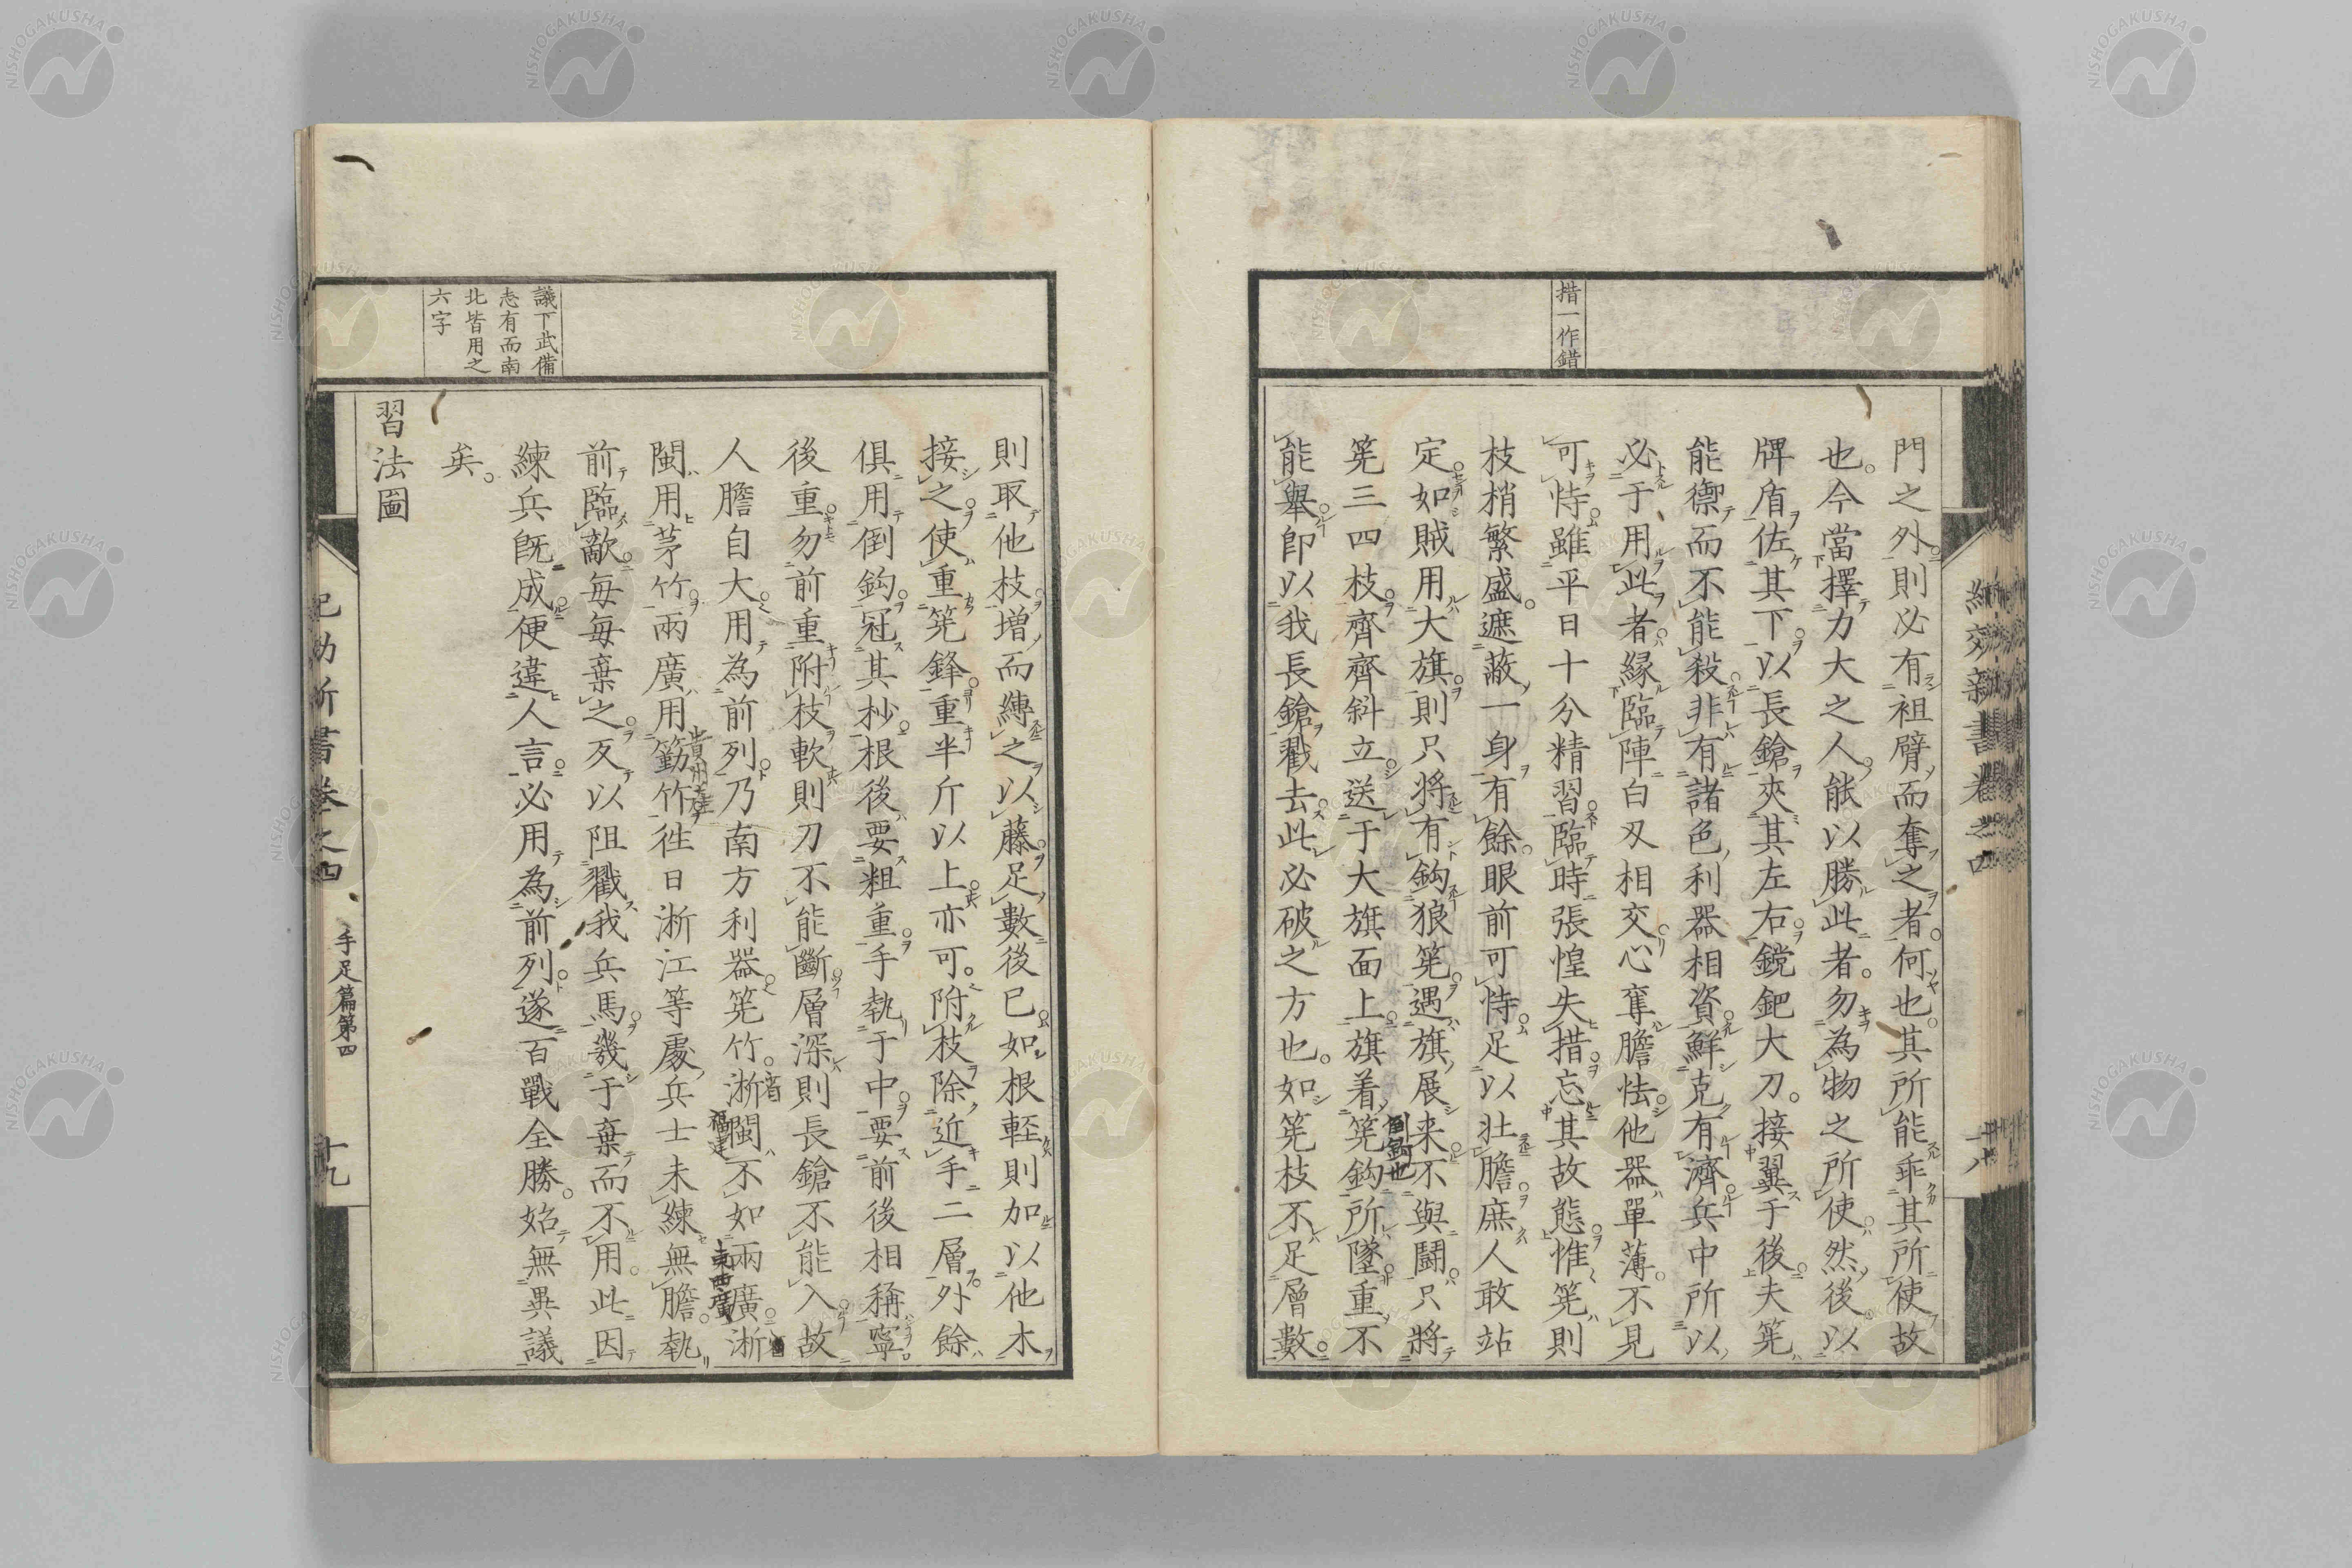 措一作錯
門之外則必有袒臂而奪之者何也其所能乖其所使故
也。今當擇力大之人能以勝此者。勿為物之所使然後以
牌盾佐其下以長鎗夾其左右鎲鈀大刀。接翼于後夫筅
能禦而不能殺非有諸色利器相資鮮克有濟兵中所以
必于用此者緣臨陣白刃相交心奪膽怯他器單薄。不見
可恃雖平日十分精習臨時張惶失措忘其故態惟筅則
枝梢繁盛。遮蔽一身有餘。眼前可恃足以壯膽庶人敢站
定如賊用大旗則只將有鈎狼筅遇旗展来不與鬪只將
筅三四枝齊齊斜立送于大旗面上旗着筅鈎所墜重不
能舉即以我長鎗戳去此必破之方也。如筅枝不足層數
倒鈎也
紀效新書卷之四
十八
議下武備
志有而南
北皆用之
六字
則取他枝増而縛之以藤足數後已如根輕則加以他木
接之使重筅鋒重半斤以上亦可。附枝除近手二層外餘
俱用倒鈎冠其杪根後要粗重手執于中要前後相稱寧
後重勿前重附枝軟則刀不能斷層深則長鎗不能入故
人膽自大用為前列乃南方利器筅竹。淅閩不如兩廣淅
福建
東西廣
閩用茅竹兩廣用簕竹徃日淅江等處兵士未練無膽。執
前臨敵毎毎棄之反以阻戳我兵馬幾于棄而不用。此因
練兵既成便違人言必用為前列遂百戰全勝。始無異議
矣。
習法圖
紀効新書卷之四
手足篇第四
十九